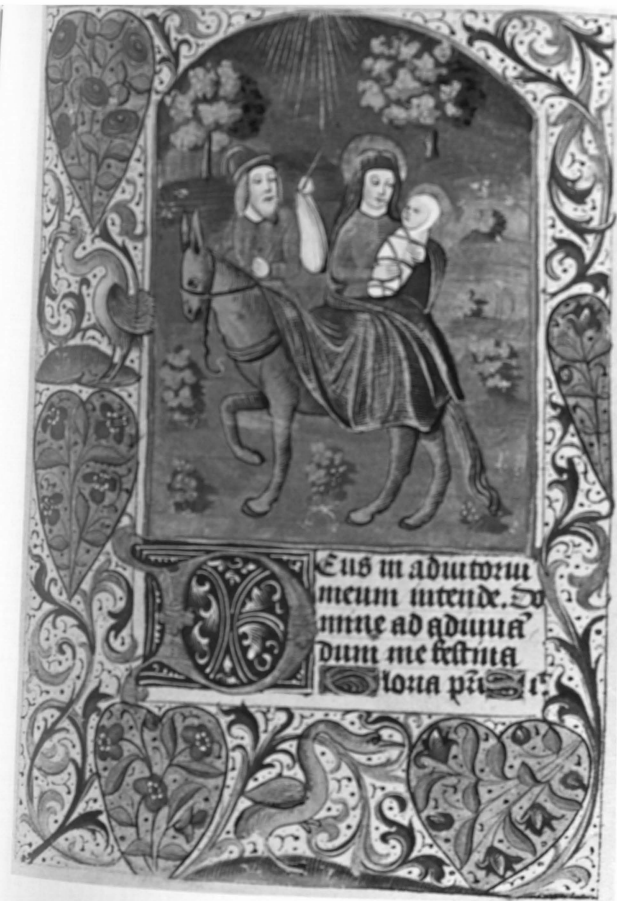 Deus in adiutoriu
meum intende. Do
mine ad adiuuā
dum me festina
Gloria pr̄i